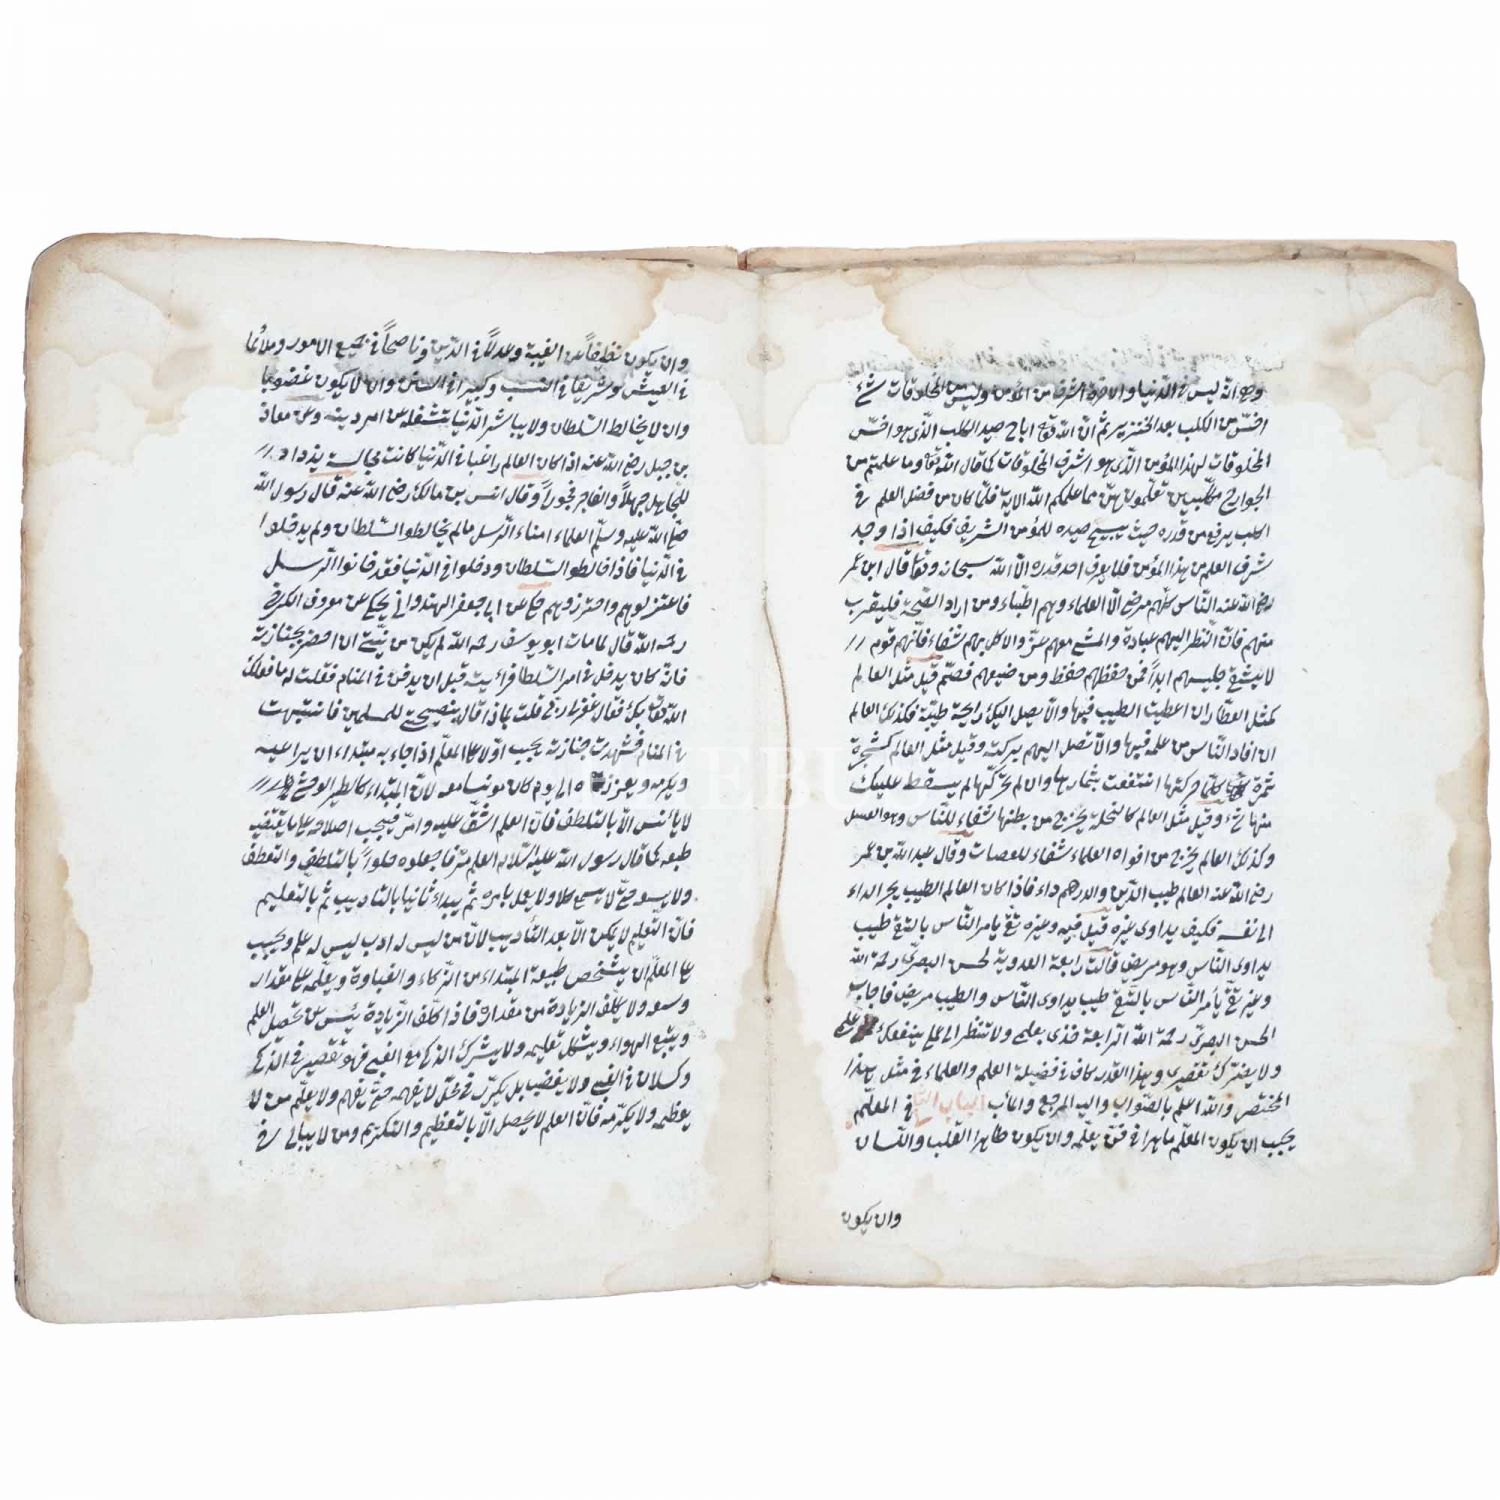 وهو انه ليس في الدنيا والاخرة اشرف من المؤمن وليس من المخلوقات شئ
اخس من الكلب بعد الخنزير ثم ان الله تعالى اباح صيد الكلب الذى هو اخس
المخلوقات لهذا المؤمن الذى هو اشرف المخلوقات كما قال الله تعالى وما علمتم من
الجوارح مكلبين تعلمونهن مما علمكم الله الاية فلما كان من فضل العلم في
الكلب يرفع من قدره حيث يبيح صيده للمؤمن الشريف فكيف اذا وجد
شرف العلم من هذا المؤمن فلا يعرف احد قدره الا الله سبحانه وتعالى قال ابن عمر
رضى الله عنه الناس كلهم مرضى الا العلماء وهم اطباء ومن اراد الصحة فليقرب
منهم فان النظر اليهم عبادة والمشى معهم عز والاكل بهم شفاء فانهم قوم
لا يشقى جليسهم ابدا فمن حفظهم حفظ ومن ضيعهم فضيم قيل مثل العالم
كمثل العطار ان اعطيت الطيب فبها والا يصل اليك رايحة طيبة فكذلك العالم
ان افاد الناس من علمه فبها والا تصل اليهم بركته وقيل مثل العالم كشجرة
ثمرة كلما حركتها انتفعت بثمارها وان لم تحركها لم يسقط عليك
منها شئ وقيل مثل العالم كالنحلة يخرج من بطنها شفاء للناس وهو العسل
وكذلك العالم يخرج من افواه العلماء شفاء للعصات وقال عبد الله بن عمر
رضى الله عنه العالم طيب الدين والدرهم داء فاذا كان العالم الطيب يجر الداء
الى نفسه فكيف يداوى غيره قيل فيه وغيره تقى يامر الناس بالتقى طبيب
يداوى الناس وهو مريض قالت رابعة العدوية لحسن البصرى رحمة الله
وغير تقى يأمر الناس بالتقى طبيب يداوى الناس والطبيب مريض فاجاب
الحسن البصرى رحمة الله الرابعة خذى بعلمى ولا تنظر الى عملى ينفعك علمى
ولا يضرك تقصيرى وهذا القدر كاف في فضيلة العلم والعلماء في مثل هذا
المختصر والله اعلم بالصواب واليه المرجع والمأب الباب الثانى في المعلم
يجب ان يكون المعلم ماهرا في فن يعلمه وان يكون طاهرا القلب واللسان
وان يكون
وان يكون نظيفا عن الغيبة وعدلا في الدين وناصحا في جميع الامور وملائما
في العيش وشريفا في النسب وكبيرا في السن وان لا يكون غضوبا
وان لا يخالط السلطان ولا يباشر الدنيا بتشغله عن امر دينه وعن معاذ
بن جبل رضى الله عنه اذا كان العالم راغبا في الدنيا كانت مجالسته يزداد
للجاهل جهلا والفاجر فجورا وقال انس بن مالك رضى الله عنه قال رسول الله
صلى الله عليه وسلم العلماء امناء الرسل ما لم يخالطوا السلطان ولم يدخلوا
في الدنيا فاذا خالطوا السلطان ودخلوا في الدنيا فقد خانوا الرسل
فاعتزلوهم واحترزوهم حكى عن ابى جعفر الهندوانى يحكى عن معروف الكرخى
رحمه الله قال لما مات ابو يوسف رحمه الله لم يكن من نيتى ان احضر بجنازته
فانه كان يدخل في امر السلطان فرأيته قبل ان يدفن في المنام فقلت له ما فعل
الله تعالى بك فقال غفر لى ربى قلت بماذا قال بنصيحتى للمسلمين فانتبهت
في المنام فشهدت جنازته يجب اولا على المعلم اذا جاء به مبتداء ان يراعيه
ويكرمه ويعززه الى يوم كان مونسا معه لان المبتداء كالطير الوحشى
لا يأنس الا بالتلطف فان العلم اشق عليه وامر فيجب اصلاحه على ما يقتضيه
طبعه كما قال رسول الله عليه السلام العلم مر فاجعلوه حلوا بالتلطف والتعطف
ولا يسوء حتى لا يسمى كلا ولا يعمل بامره ثم يبداء ثانيا بالتاديب ثم بالتعليم
فان التعليم لا يمكن الا بعد التأديب لان من ليس له ادب ليس له علم ويجب
على المعلم ان يشخص طبيعة المبتداء من الزكاء والغباوة ويعلمه على مقدار
وسعه ولا يكلف الزيادة من مقداره فاذا كلف الزيادة يئس عن تحصيل العلم
ويتبع الهواء ويشكل تعليمه ولا يشرك الذكى مع الغبى فهو تقصير في الذكى
وكسلان في الغبى ولا يغضب بل يكرر في محل لا يفهمه حتى يفهم ولا يعلم من لا
يعظمه ولا يكرمه فان العلم لا يحصل الا بالتعظيم والتكريم ومن لا يبالى في